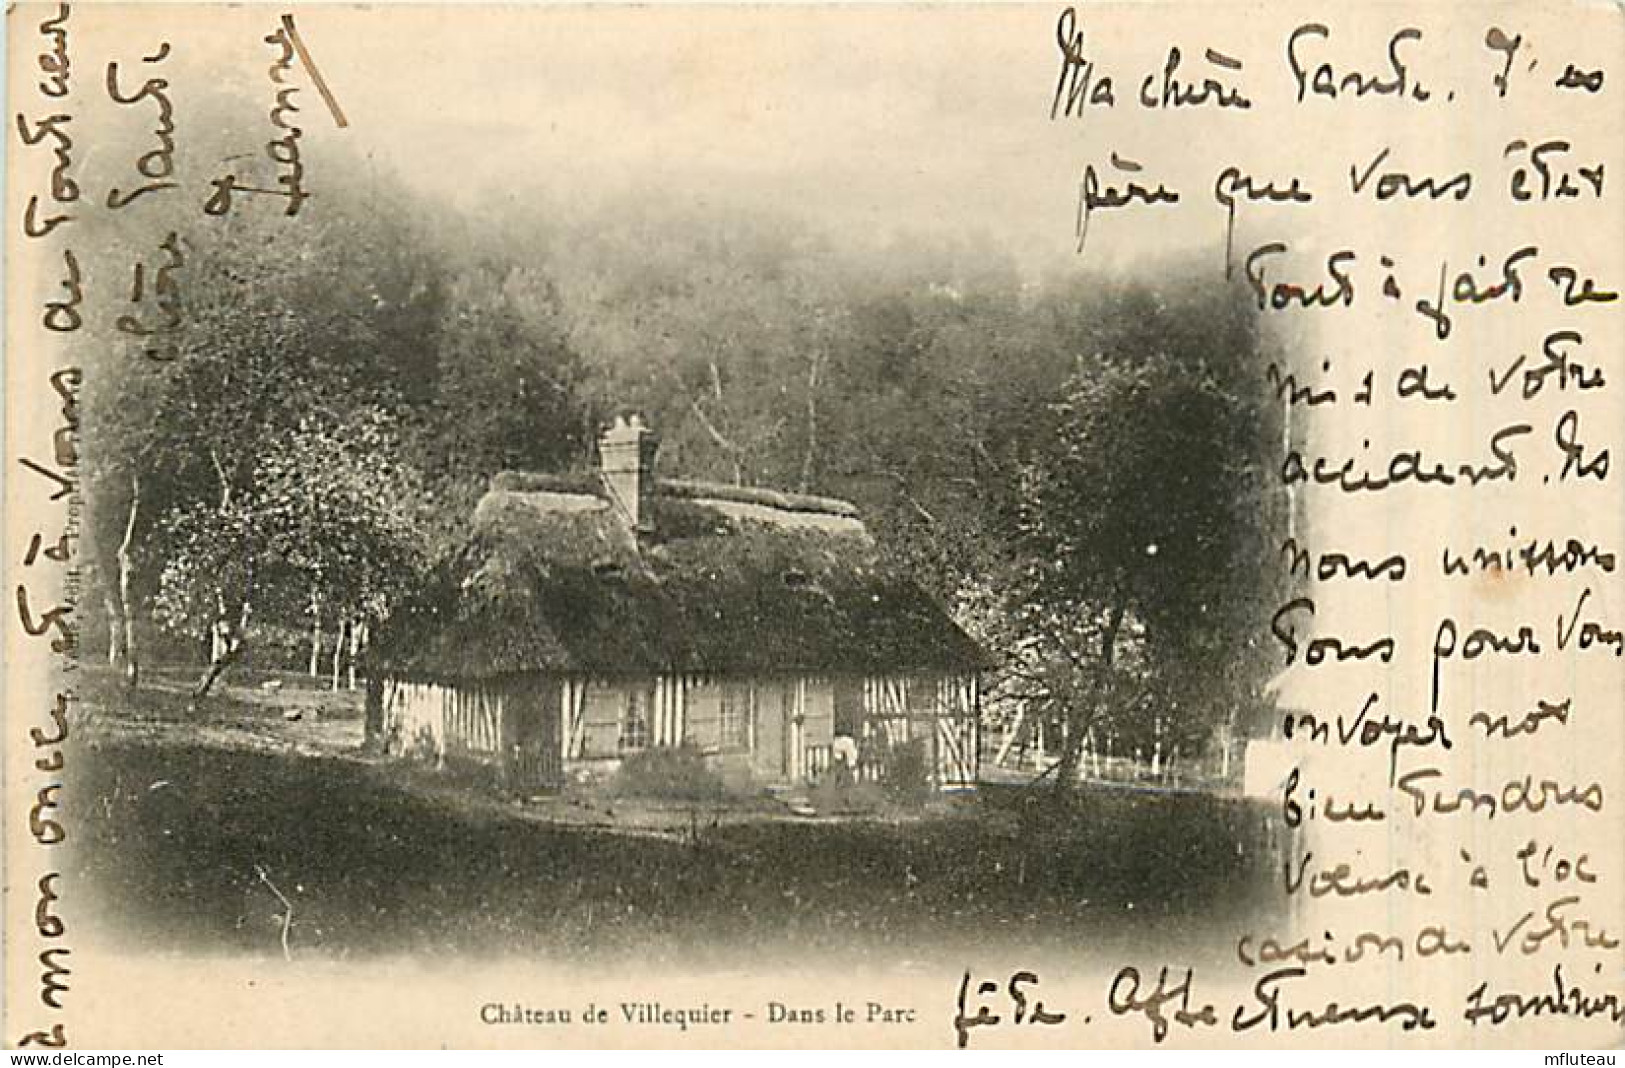 Ma chère Tante. J'es
père que vous êtes
tout à fait re
mis de votre
accident. Ns
nous unissons
tous pour vous
envoyer nos
bien tendres
à l'oc
casion de votre
fête. Affectueux
à mon oncle et à vous de tout cœur
chère Tante
Jeanne
Château de Villequier - Dans le Parc
mfluteau